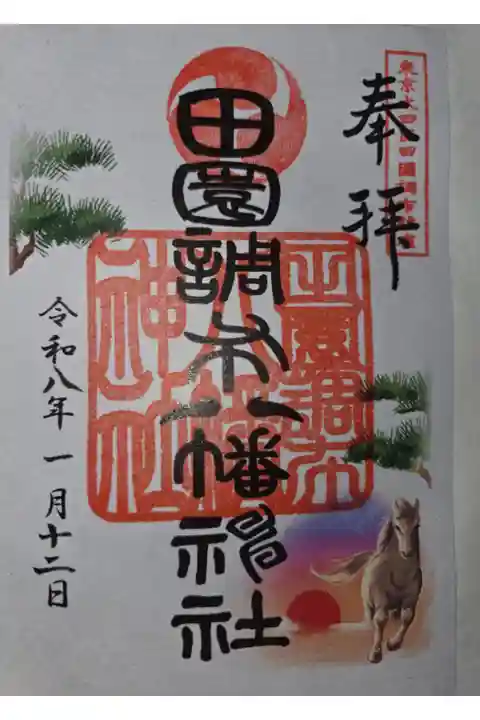 奉拝
田園調布八幡神社
令和八年一月十二日
田園調布
八幡
神社